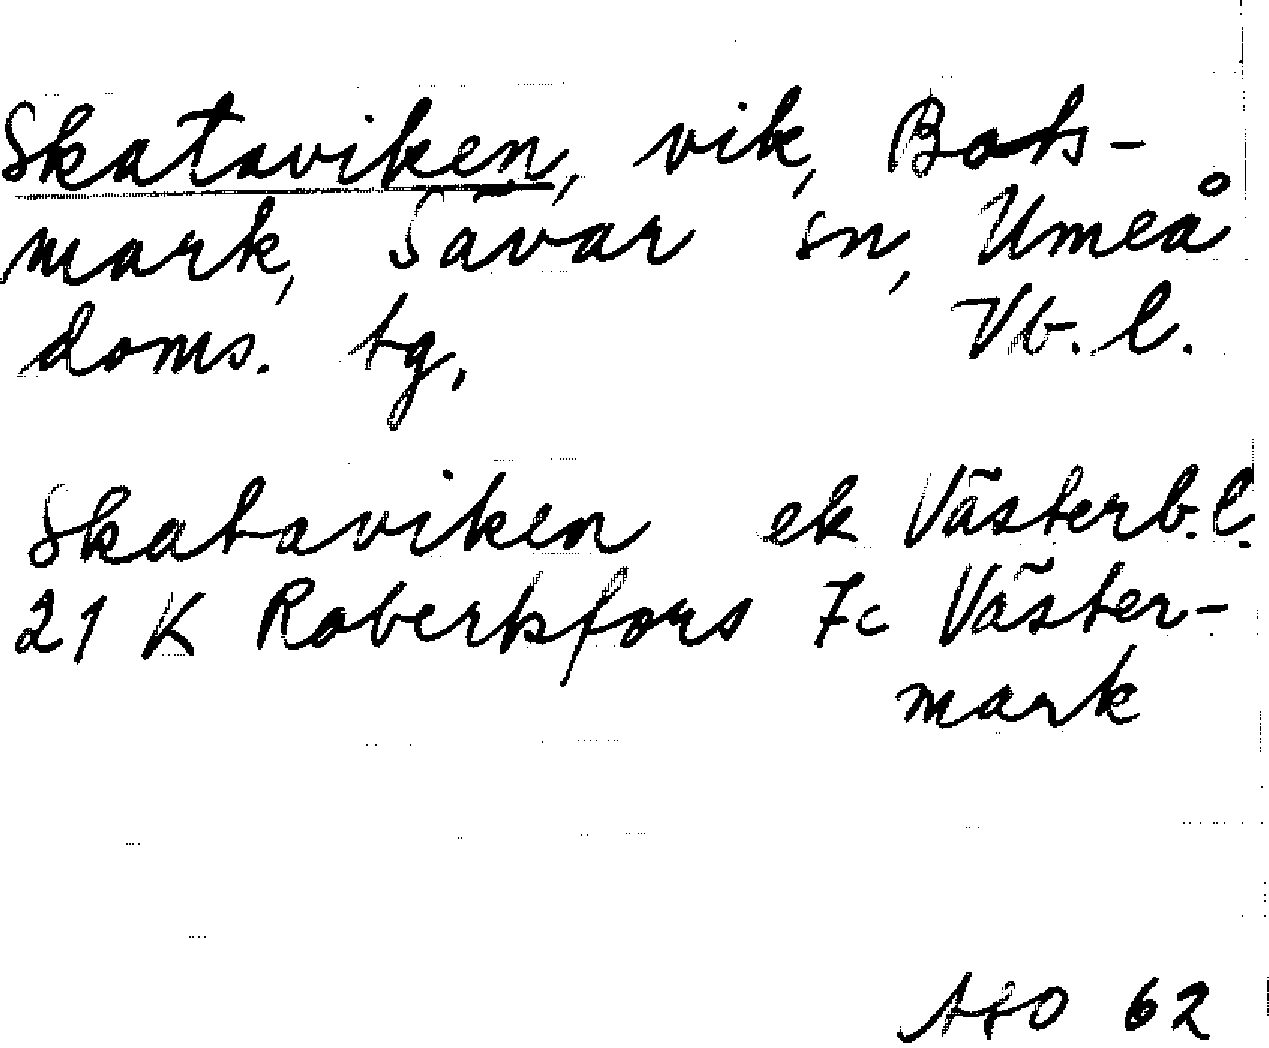 Skataviken, vik, Bots-
mark, Sävar sn, Umeå
doms. tg. Vb. l.
Skataviken ek Västerb. l.
21 K Robertsfors 7c Väster-
mark
62